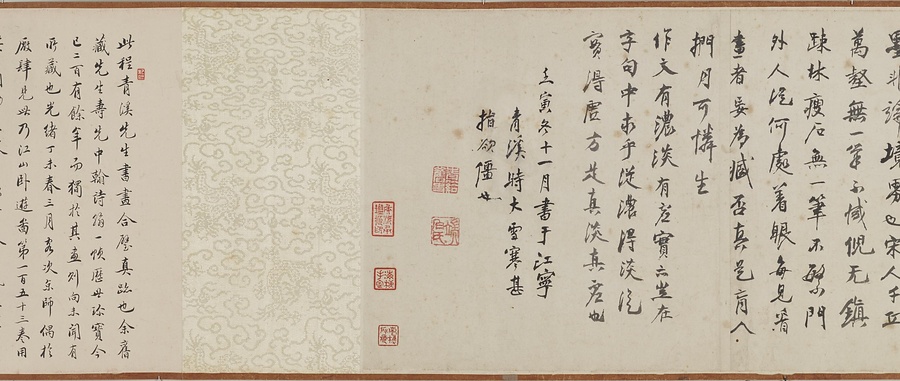 墨非論境男也宋人千丘
萬壑無一筆不減倪无鎮
疎林瘦石無一筆不繁門
外人從何處着眼每見瞽
畫者妄為臧否真是盲人
捫月可憐生
作文有濃淡有虛實亦豈在
字句中求乎從濃得淡從
實得虛方是真淡真虛也
壬寅冬十一月書于江寧
青溪時大雪寒甚
指欲僵也
此程青溪先生書畫合璧真跡也余舊
藏先生壽先中翰詩翁一幀歷世珍寶今
已二百有餘年而獨於其畫則向未聞有
所藏也光緒丁未春三月客次京師偶於
廠肆見此乃江山卧遊圖第一百五十三卷用